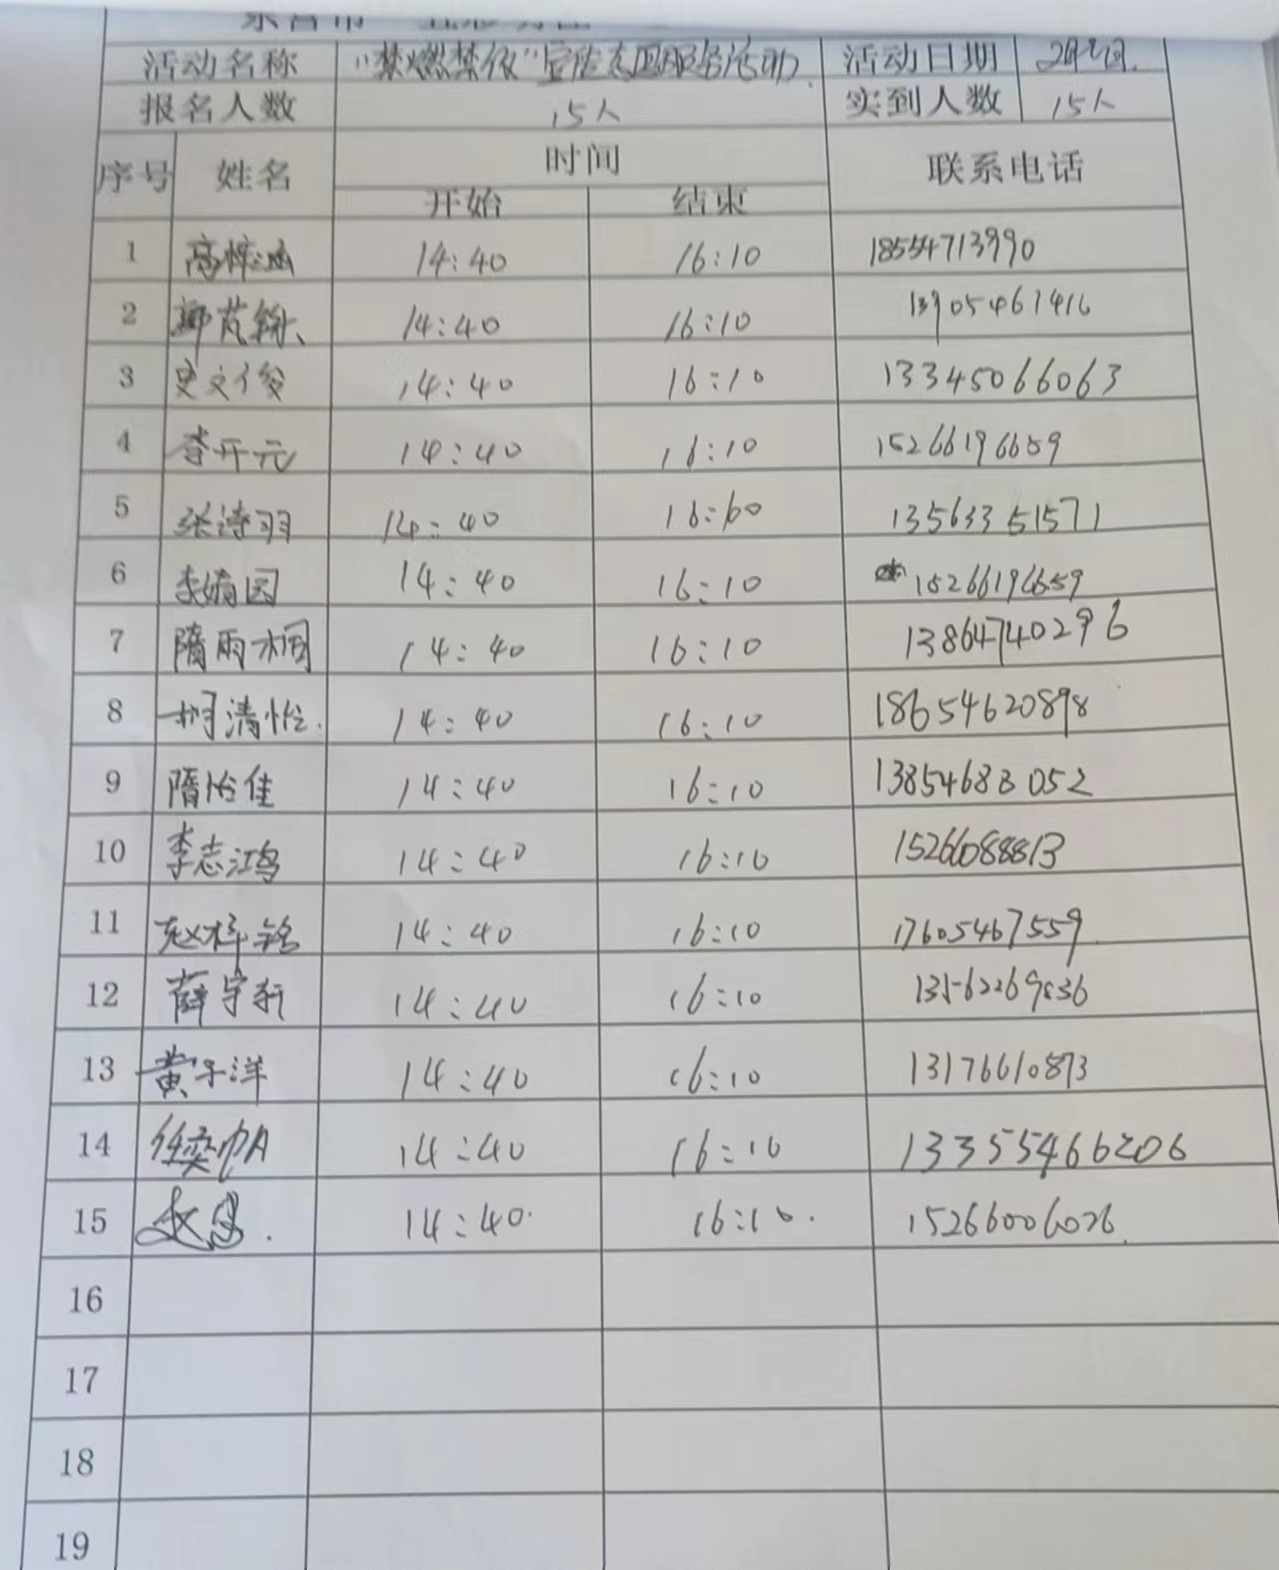 活动名称 "禁燃禁放"宣传志愿服务活动 活动日期
报名人数 15人 实到人数 15人
序号 姓名 时间 联系电话
开始 结束
1 高梓涵 14:40 16:10 18554713990
2 14:40 16:10 13905461416
3 史文俊 14:40 16:10 13345066063
4 李开元 14:40 16:10 15266196659
5 张诗羽 14:40 16:60 13563351571
6 李婧园 14:40 16:10 15266196659
7 隋雨桐 14:40 16:10 13864740296
8 柯清怡. 14:40 16:10 18654620898
9 隋怡佳 14:40 16:10
10 李志鸿 14:40 16:10 15266088813
11 赵梓铭 14:40 16:10 17605467559
12 薛宇航 14:40 16:10 13562269836
13 黄子洋 14:40 16:10 13176610873
14 任奕帆 14:40 16:10 13355466206
15 14:40 16:10. 15266006026
16
17
18
19